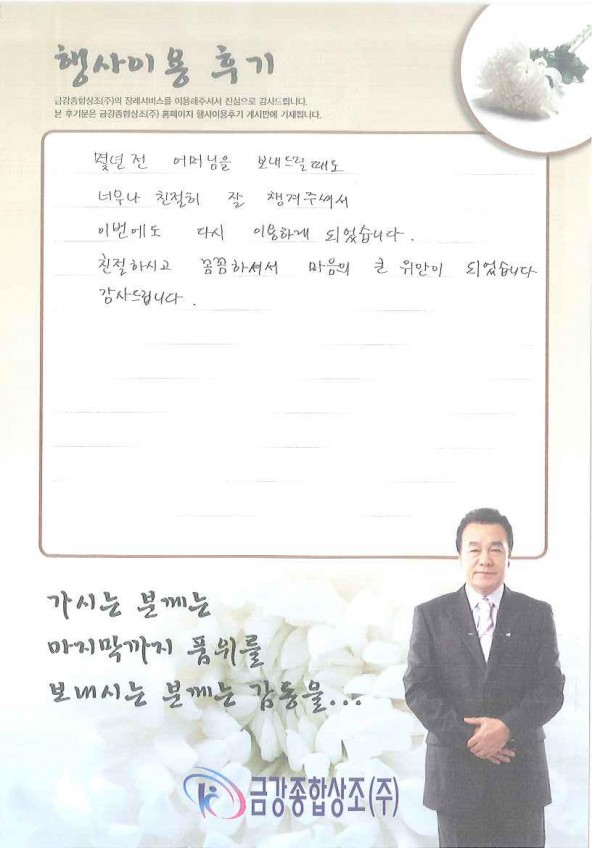 행사이용 후기
금강종합상조(주)의 장례서비스를 이용해주셔서 진심으로 감사드립니다.
본 후기분은 금강종합상조(주) 홈페이지 행사이용후기 게시판에 기재됩니다.
몇년 전 어머님을 보내드릴때도
너무나 친절히 잘 챙겨주셔서
이번에도 다시 이용하게 되었습니다.
친절하시고 꼼꼼하셔서 마음의 큰 위안이 되었습니다
감사드립니다.
가시는 분께는
마지막까지 품위를
보내시는 분께는 감동을...
금강종합상조(주)